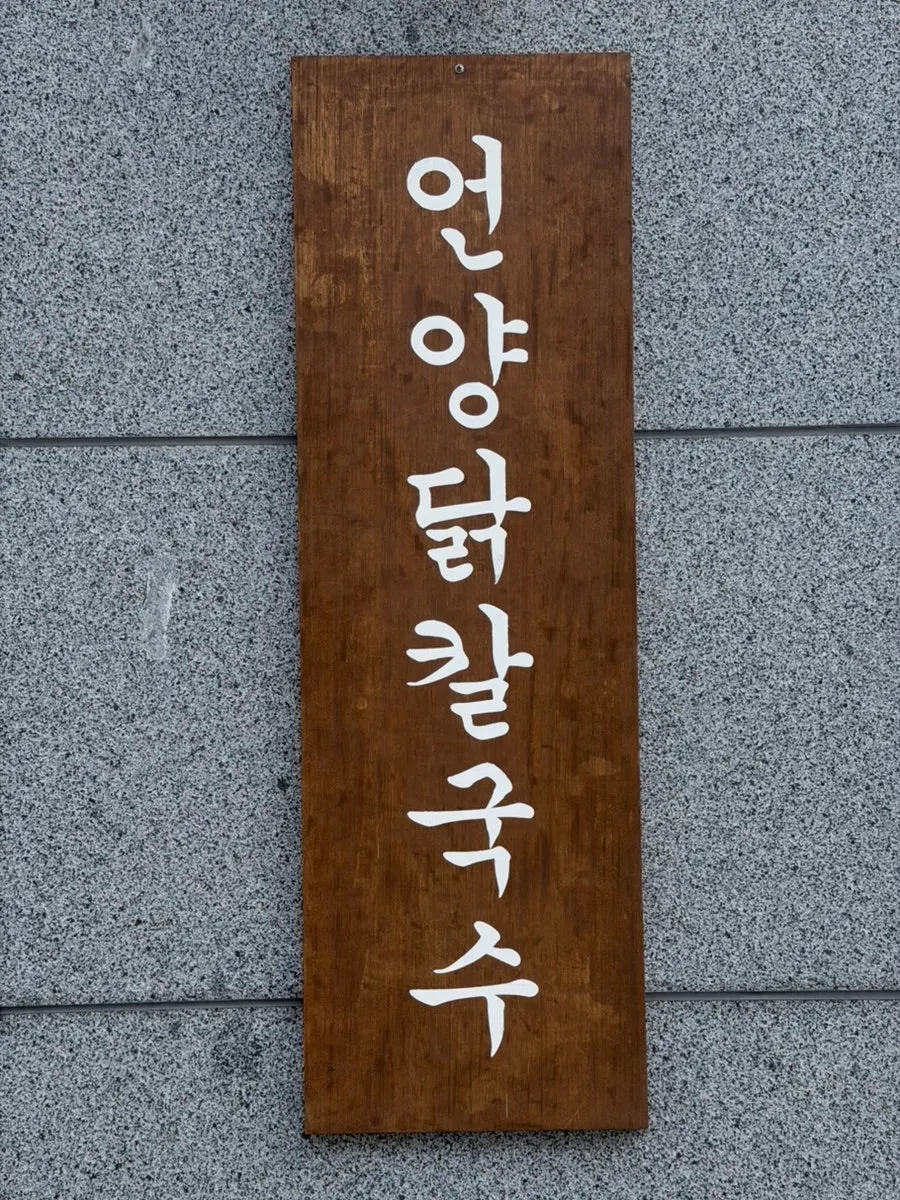 언양닭칼국수